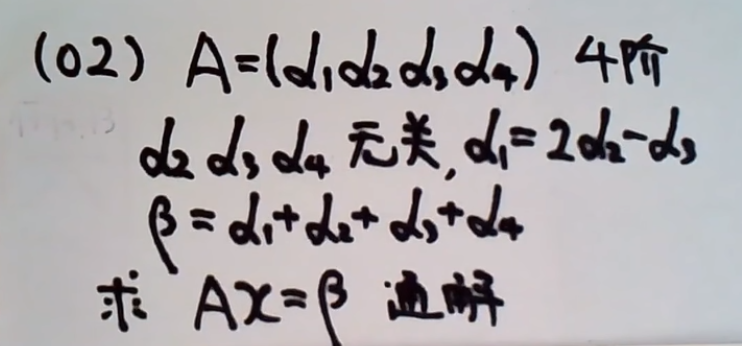 (02) A=(α₁α₂α₃α₄) 4阶
α₂α₃α₄无关,α₁=2α₂-α₃
β=α₁+α₂+α₃+α₄
求 Ax=β 通解